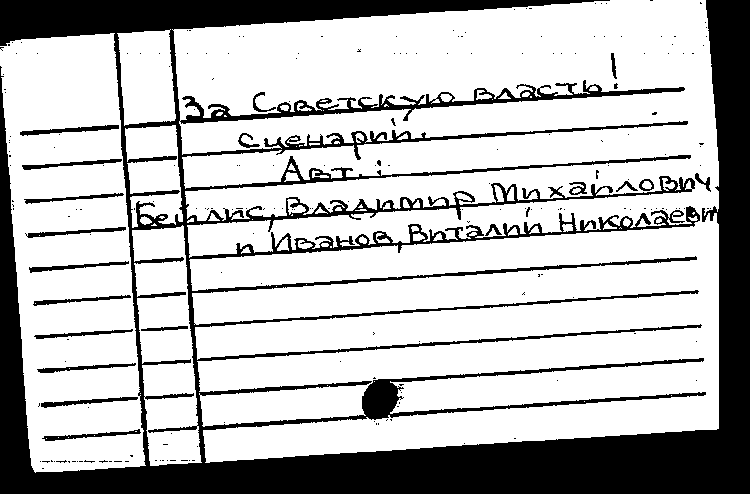 За Советскую власть!
Сценарий.
Авт.:
Бейлис, Владимир Михайлович.
и Иванов, Виталий Николаевич